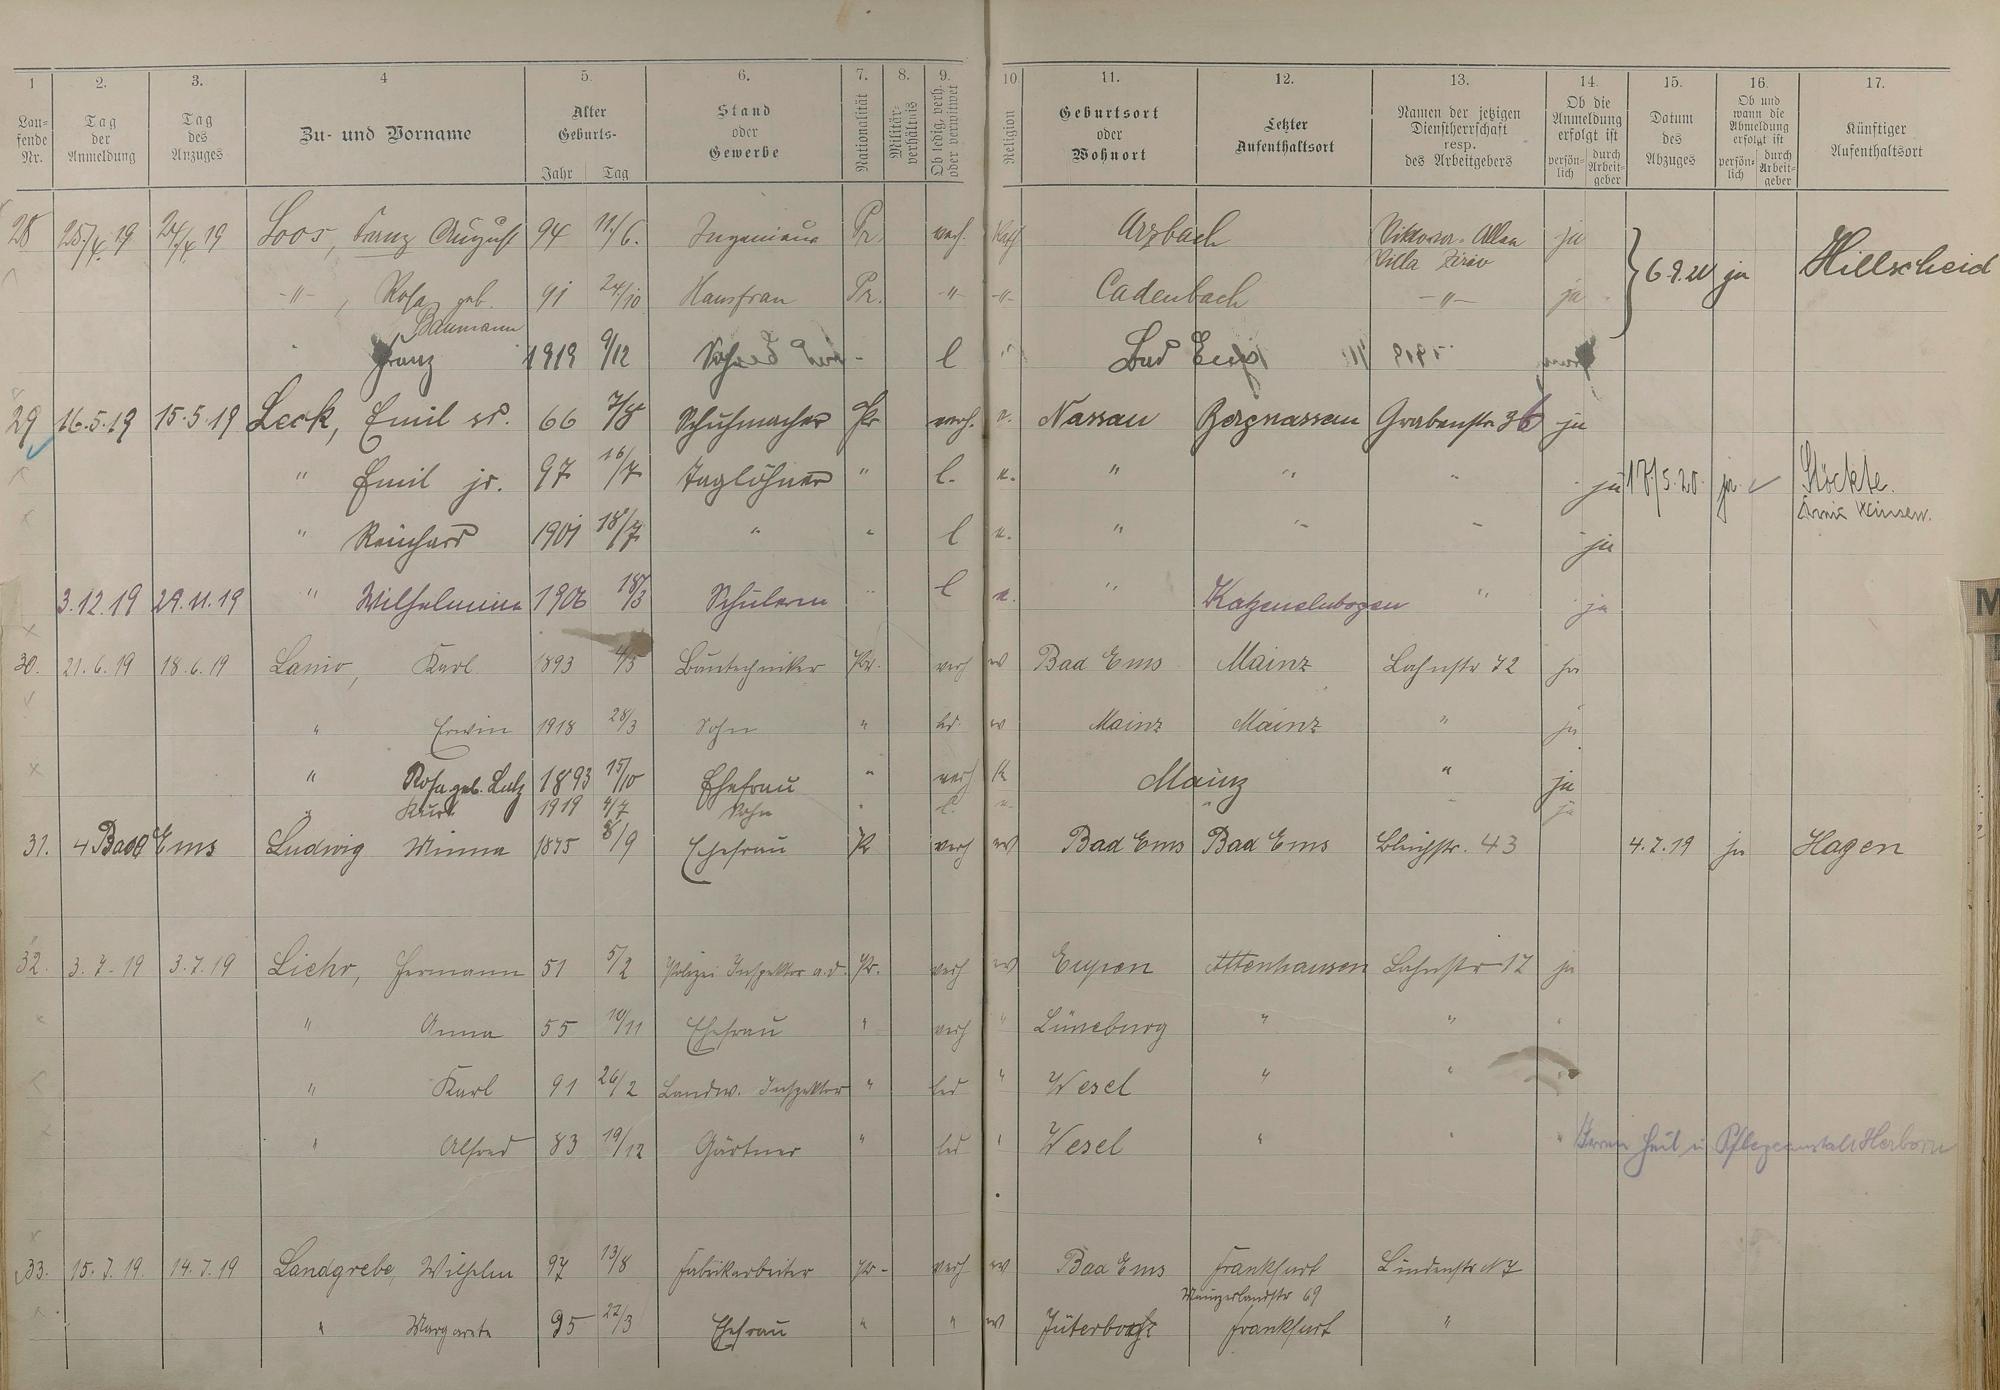 1 2. 3. 4 5. 6. 7. 8. 9. 10. 11. 12. 13. 14. 15. 16. 17.
Lau-fende Nr. Tag der Anmeldung Tag des Anzuges Zu- und Vorname Alter Geburts- Jahr Tag Stand oder Gewerbe Nationalität Militär-verhältnis Ob ledig, verh. oder verwitwet Religion Geburtsort oder Wohnort Letzter Aufenthaltsort Namen der jetzigen Dienstherrschaft resp. des Arbeitgebers Ob die Anmeldung erfolgt ist persön-lich durch Arbeit-geber Datum des Abzuges Ob und wann die Abmeldung erfolgt ist persön-lich durch Arbeit-geber Künftiger Aufenthaltsort
28 25./4. 19 24./4 19 Loos, Franz August 94 11./6. Ingenieur Pr. verh. Kath Arzbach ja 6.9.20 ja Hillscheid
Villa
-"-, Rosa geb. 91 24/10 Hausfrau Pr. -"- -"- Cadenbach -"- ja
Baumann
Franz 1919 9/12 Sohn - l " Bad Ems
29 16.5.19 15.5.19 Leck, Emil sr. 66 7/8 Schuhmacher Pr verh. e. Nassau Bergnassau Grabenstr. 36 ja
" Emil jr. 97 16/7 Taglöhner " l. e. " " " ja 17/5.20. ja Höckte.
" Reinhard 1901 18/7 " " l e. " " " ja
3.12.19 29.11.19 " Wilhelmine 1906 18/3 Schülerin " l e. " Katzenelnbogen " ja
30. 21.6.19 18.6.19 Lanio, Karl 1893 4/3 Bautechniker Pr. verh ev Bad Ems Mainz Lahnstr 72 ja
" Erwin 1918 28/3 Sohn " led ev Mainz Mainz " ja
" Rosa geb. Lutz 1893 15/10 Ehefrau " verh K Mainz " ja
" Kurt 1919 4/7 Sohn " l. e. " ja
31. Bad Ems Ludwig Minna 1875 8/9 Ehefrau Pr verh ev Bad Ems Bad Ems Bleichstr. 43 4.7.19 ja Hagen
32. 3.7.19 3.7.19 Liehr, Hermann 51 5/2 Polizei Inspektor a.d. Pr. verh ev Eupen Attenhausen Lahnstr 12 ja
" Anna 55 10/11 Ehefrau " verh " Lüneburg " " "
" Karl 91 26/2 Landw. Inspektor " led " Wesel " "
" Alfred 83 19/12 Gärtner " led " Wesel " " " Irren Heil u Pflegeanstalt Herborn
33. 15.7.19. 14.7.19 Landgrebe, Wilhelm 97 13/8 Fabrikarbeiter Pr. verh ev Bad Ems Frankfurt Lindenstr N 7
Mainzerlandstr 69
" Margarete 95 22/3 Ehefrau " " ev Jüterbog Frankfurt "